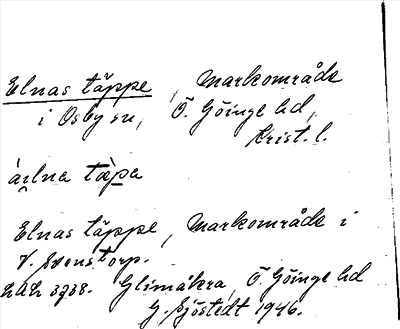 Elnas täppe, Markområde
i Osby sn, Ö. Göinge hd,
Krist. l.
Elnas täppe, Markområde i
V. Svenstorp.
LAL 3738. Glimåkra, Ö. Göinge hd
G. Sjöstedt 1946.